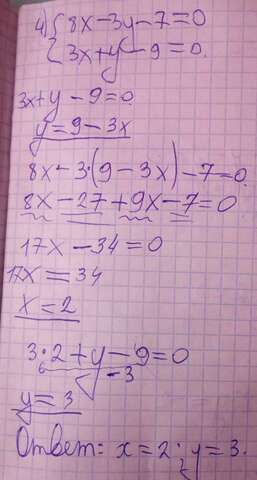 4) { 8x-3y-7=0
3x+y-9=0.
3x+y-9=0
y=9-3x
8x-3·(9-3x)-7=0
8x-27+9x-7=0
17x-34=0
17x=34
x=2
3·2+y-9=0
6 -3
y=3
Ответ: x=2; y=3.